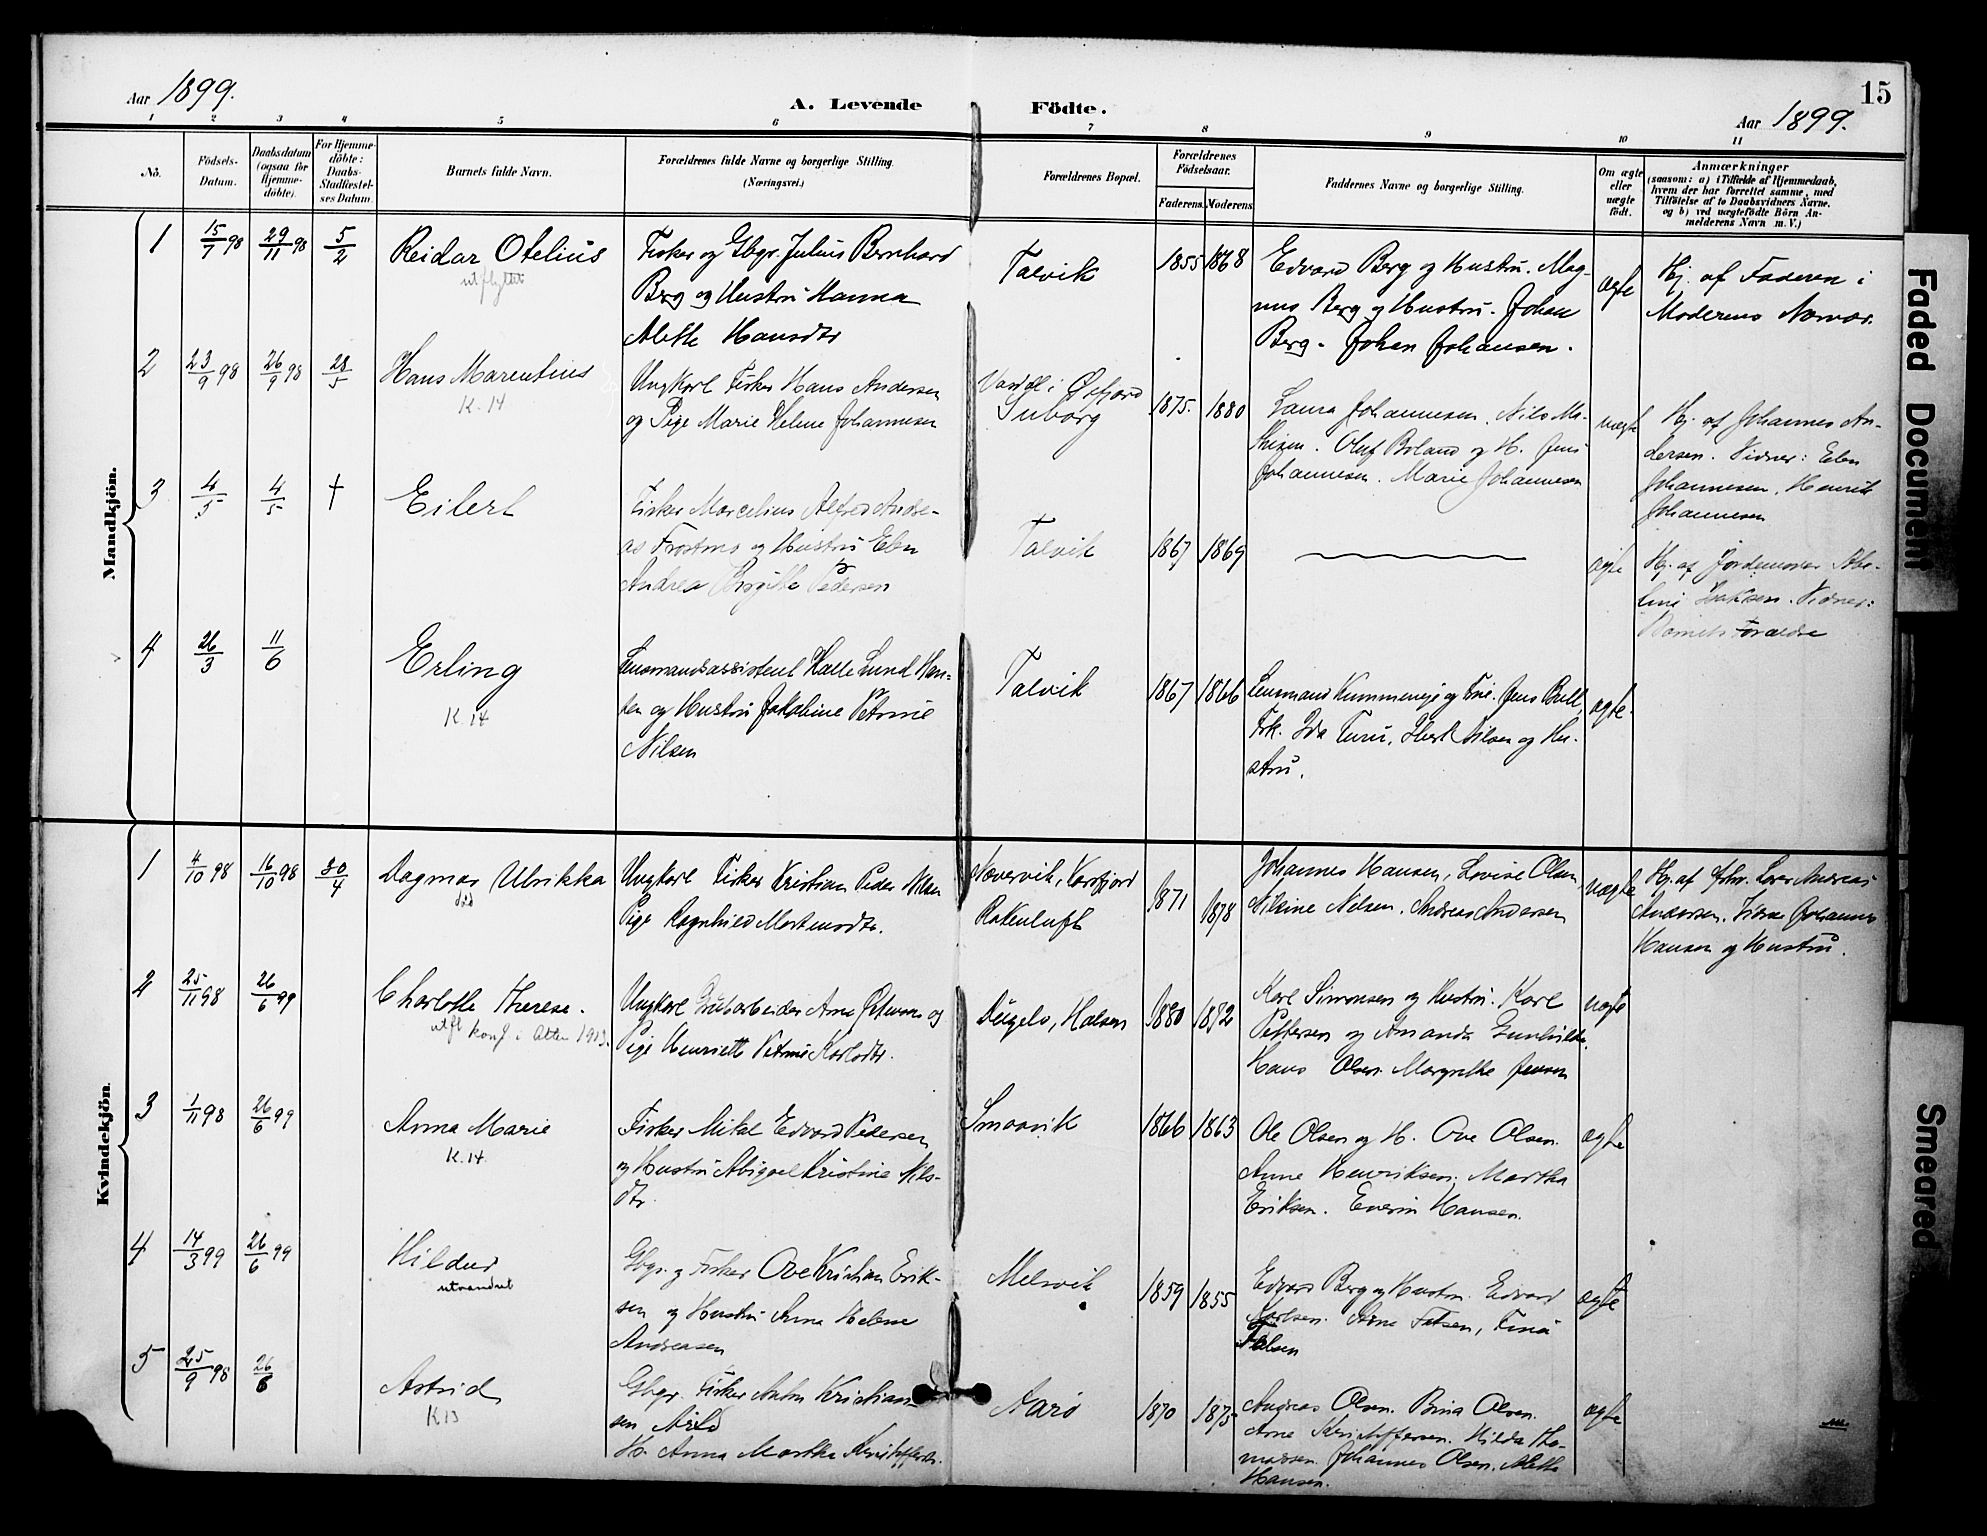 15
Aar 1899.
A. Levende Födte.
Aar 1899.
1 2 3 4 5 6 7 8 9 10 11
No.
Födsels-
Datum.
Daabsdatum
(ogsaa for
Hjemme-
döbte).
For Hjemme-
döbte:
Daabs-
Stadfæstel-
ses Datum.
Barnets fulde Navn.
Forældrenes fulde Navne og borgerlige Stilling.
(Næringsvei.)
Forældrenes Bopæl.
Forældrenes
Födselsaar.
Faderens. Moderens.
Faddernes Navne og borgerlige Stilling.
Om ægte
eller
uægte
födt.
Anmærkninger
(saasom: a) i Tilfælde af Hjemmedaab,
hvem der har forrettet samme, med
Tilföielse af to Daabsvidners Navne,
og b) ved uægtefödte Börn An-
melderens Navn m. V.)
Mandkjön.
1 15/7 98 29/11 98 5/2
Reidar Otelius
utflyttet
Fisker og Gbgr. Julius Bernhard
Berg og Hustru Hanna
Alette Hansdtr
Talvik
1855 1868
Edvard Berg og Hustru. Mag-
nus Berg og Hustru. Johan
Berg. Johan Johansen.
ægte
Hj. af Faderen i
Moderens Nærvær.
2 23/9 98 26/9 98 28/5
Hans Marentius
K. 14
Ungkarl Fisker Hans Andersen
og Pige Marie Helene Johannesen
i Øxfjord
1875. 1880
Laura Johannesen. Nils Ma-
thisen. Oluf Boland og H. Jens
Johannesen. Marie Johannesen
uægte
Hj. af Johannes An-
dersen. Vidner: Elen
Johannesen, Henrik
Johannesen
3 4/5 4/5 †
Eilert
Fisker Marcelius Alfred Andre-
as Frostmo og Hustru Elen
Andrea Birgitte Pedersen
Talvik
1867 1869
ægte
Hj. af Jordemoder
Isaksen. Vidner:
Barnets Forældre
4 26/3 11/6
Erling
K. 14
Lensmandsassistent Halle Lund Han-
sen og Hustru Jakobine Petrine
Nilsen
Talvik
1867 1866
Lensmand Kummeneje og Frue. Jens Bull,
Frk. Ida Nilsen og Hu-
stru.
ægte.
Kvindekjön.
1 4/10 98 16/10 98 30/4
Dagmar Ulrikka
död
Ungkarl Fisker Kristian Peder Nilsen
Pige Ragnhild Mortensdtr.
Nævervik, Korsfjord
Rakenluft
1871 1878
Johannes Hansen, Lovise Olsen,
Nilsine Nilsen. Andreas Andersen
uægte
Hj. af Andreas
Andersen. Johannes
Hansen og Hustru.
2 25/11 98 26/6 99
Charlotte Therese.
utfl konf. i Alten 1913.
Ungkarl Grubarbeider Arne og
Pige Henriette Petrine Karlsdtr.
Halsen
1880 1872
Karl Simonsen og Hustru. Karl
Pettersen og Amanda Gunhilda.
Hans Olsen. Margrethe Jensen
uægte
3 1/11 98 26/6 99
Anna Marie
K. 14.
Fisker Mikal Edvard Pedersen
og Hustru Abigael Kristine Nils-
dtr.
Smaavik
1866 1863
Ole Olsen og H. Ove Olsen.
Anne Henriksen. Martha
Eriksen. Hansen.
ægte
4 14/3 99 26/6 99
Hildur
utvandret
Gbgr. og Fisker Ove Kristian Erik-
sen og Hustru Anna Helene
Andreasen
Melsvik
1859 1855
Edvard Berg og Hustru. Edvard
Karlsen. Arne
ægte
5 25/9 98 26/6
Astrid
K 13
Gbgr. Fisker Anton Kristian-
sen
H. Anna Martha Kristoffersdtr.
Aarö
1870 1875
Andreas Olsen. Bina Olsen.
Arne Kristoffersen. Hilda Tho-
massen. Johannes Olsen. Mette
Hansen.
ægte
Faded Document
Smeared